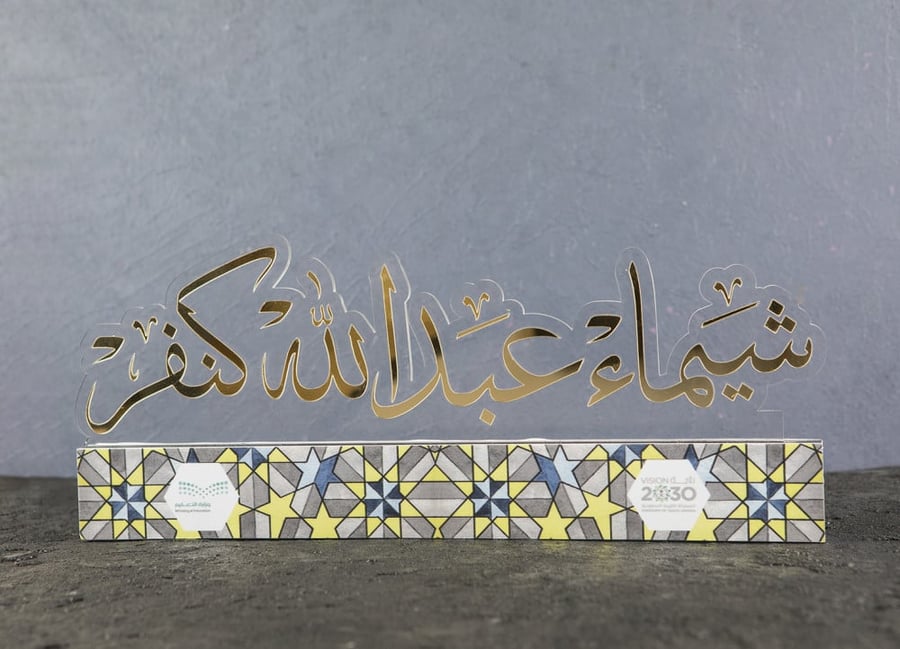 شيماء عبدالله كنفر
وزارة التعليم
Ministry of Education
VISION رؤيــة
2030
المملكة العربية السعودية
KINGDOM OF SAUDI ARABIA